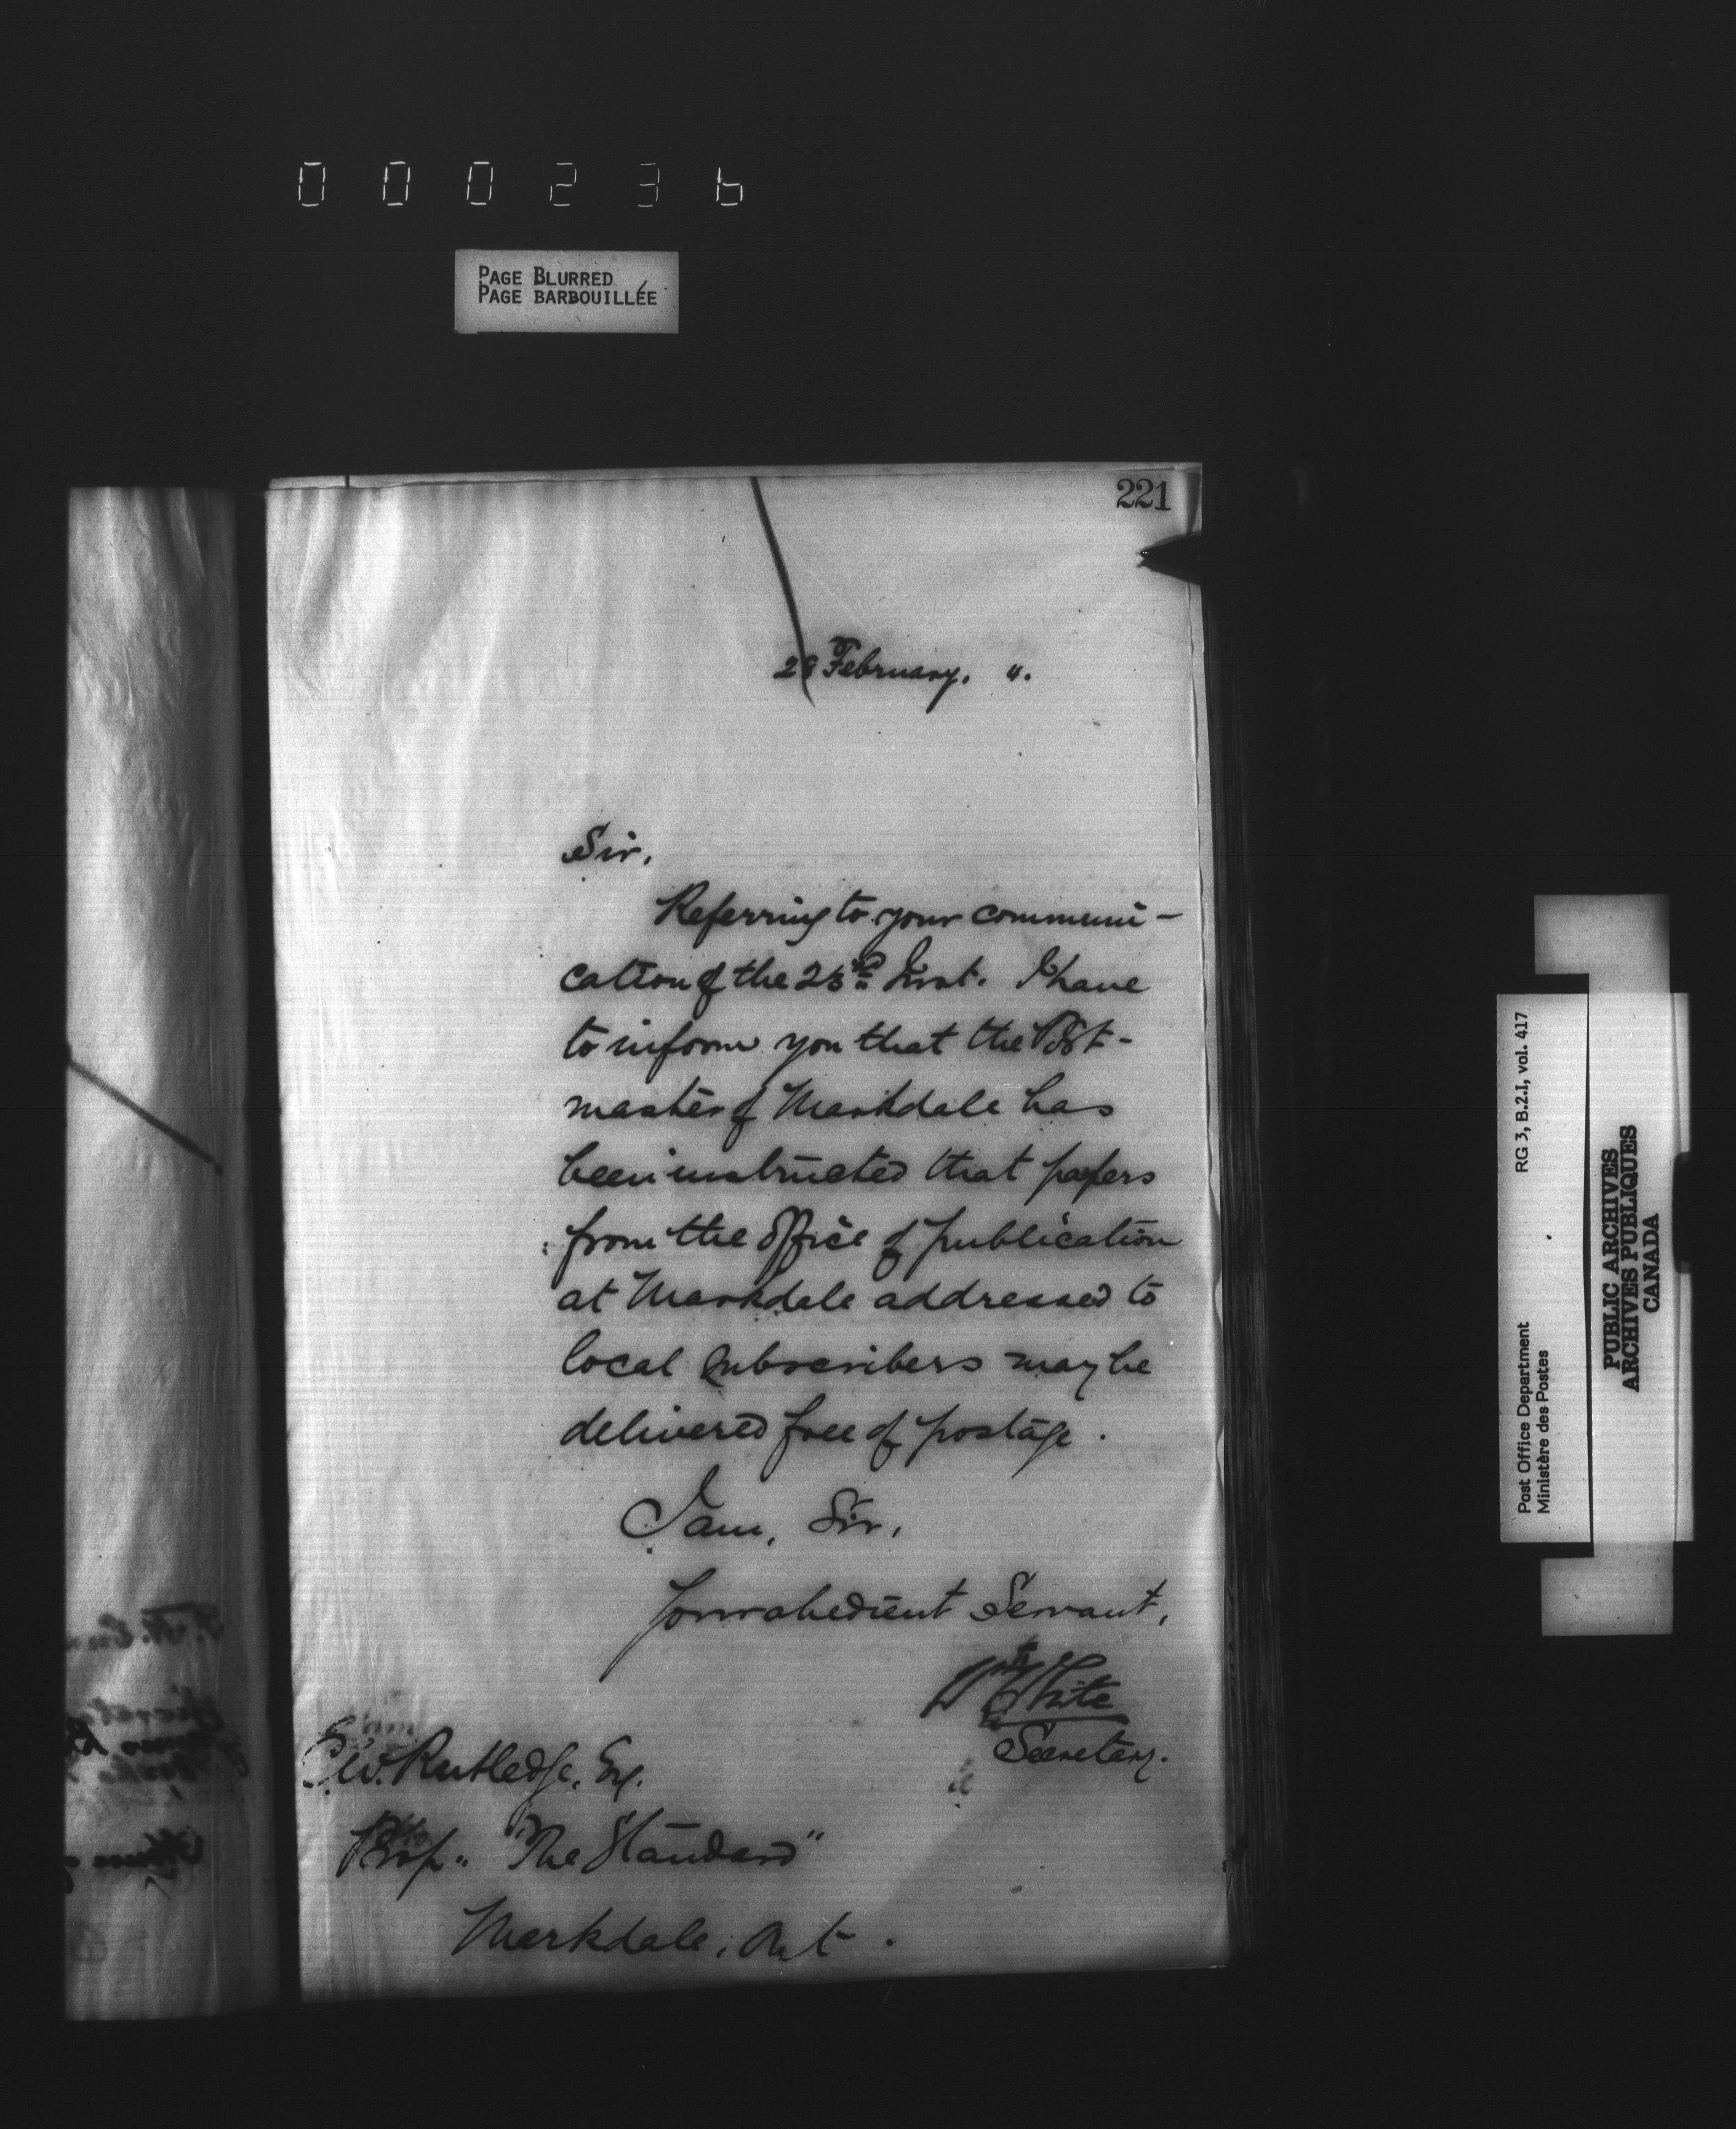 000236
PAGE BLURRED
PAGE BARBOUILLÉE
221
28 February. ".
Sir,
Referring to your communi-
cation of the 25th Inst. I have
to inform you that the Post-
master of Markdale has
been instructed that papers
from the office of publication
at Markdale addressed to
local subscribers may be
delivered free of postage.
I am, Sir,
Your obedient Servant,
Wm White
Secretary.
Rutledge, Esq.
Prop. "The Standard"
Markdale, Ont.
RG 3, B.2.I, vol. 417
Post Office Department
Ministère des Postes
PUBLIC ARCHIVES
ARCHIVES PUBLIQUES
CANADA